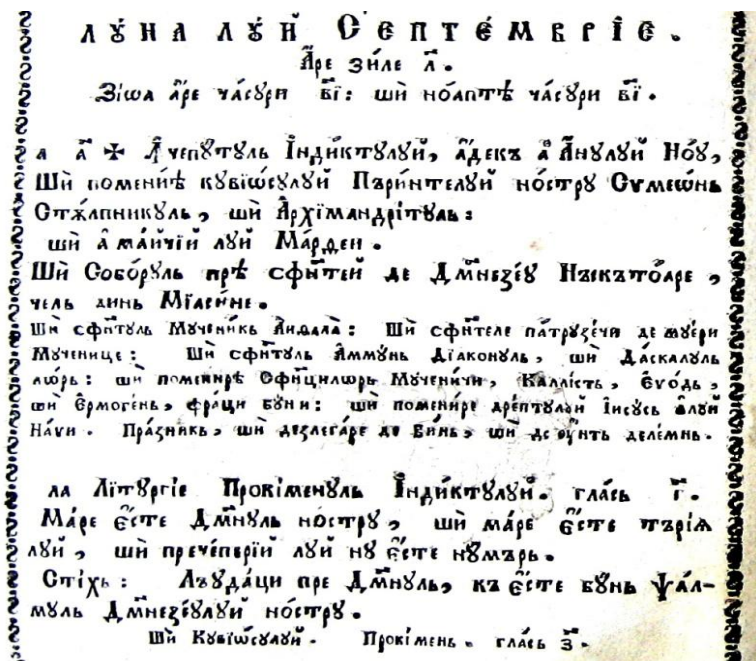 ЛꙊ́НА ЛꙊ́Й СЕПТЕ́МВРЇЕ.
А҆́ре зи́ле л҃.
Зі́ѡа а҆́ре ча́сꙋри в҃і: шѝ но́аптѣ ча́сꙋри в҃і.
а а҃ ✠ Ꙟ҆чепꙋ́тꙋль І҆ндїктꙋлꙋй, а҆́декъ а҆̀ А҆́нꙋлꙋй Но́ꙋ,
Шѝ помени́ѣ кꙋвїѡ́сꙋлꙋй Пъри́нтелꙋй но́стрꙋ Сѵмеѡ́нь
Стѫ́лпникꙋль, шѝ А҆рхїмандрі́тꙋль:
шѝ а҆̀ ма́йчїй лꙋ́й Ма́рѳеи.
Шѝ Собо́рꙋль прѣ сфи́нтей де Дм҃незе́ꙋ Нъскъто́аре,
чель динь Мїасі́не.
Шѝ сфи́нтꙋль Мꙋ́ченикь Аиѳала̀: Шѝ сфи́нтеле па́трꙋзечи де мꙋе́ри
Мꙋ́ченице: Шѝ сфи́нтꙋль А҆ммꙋ́нь Дїа́конꙋль, шѝ Да́скалꙋль
лѡ́рь: шѝ помени́рѣ Сфи́нцилѡрь Мꙋ́ченичи, Каллі́сть, Е҆ѵо́дь,
шѝ Е҆рмоге́нь, фра́ци бꙋ́ни: шѝ помени́ре дре́птꙋлꙋй І҆исꙋ́сь а҆лꙋ́й
На́ѵи. Пра́зникь, шѝ дезлега́ре де ви́нь, шѝ де ᲂу҆́нть деле́мнь.
ла Лїтꙋргі́е Прокі́менꙋль І҆ндїктꙋлꙋй. гла́сь г҃.
Ма́ре є҆́сте Дм҃нꙋль но́стрꙋ, шѝ ма́ре є҆́сте търі́ѧ
лꙋ́й, шѝ приче́перїй лꙋ́й нꙋ є҆́сте нꙋ́мърь.
Сті́хь: Лъꙋда́ци пре Дм҃нꙋль, къ є҆́сте бꙋ́нь Ѱал-
мꙋль Дм҃незе́ꙋлꙋй но́стрꙋ.
Шѝ Кꙋвїѡ́сꙋлꙋй. Прокі́мень. гла́сь з҃.